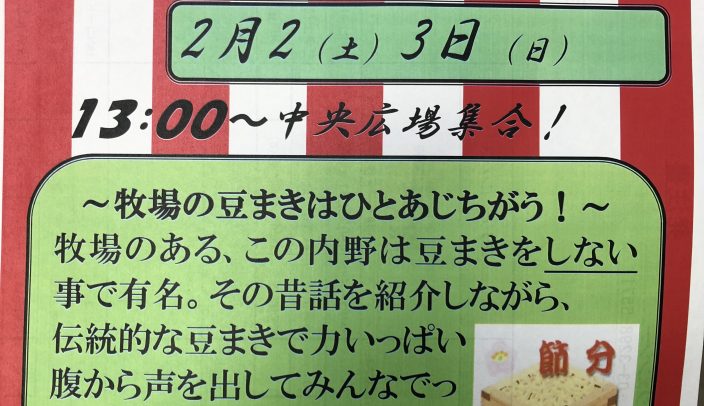 2月2（土）3日（日）
13:00～中央広場集合！
～牧場の豆まきはひとあじちがう！～
牧場のある、この内野は豆まきをしない
事で有名。その昔話を紹介しながら、
伝統的な豆まきで力いっぱい
節分
腹から声を出してみんなでっ